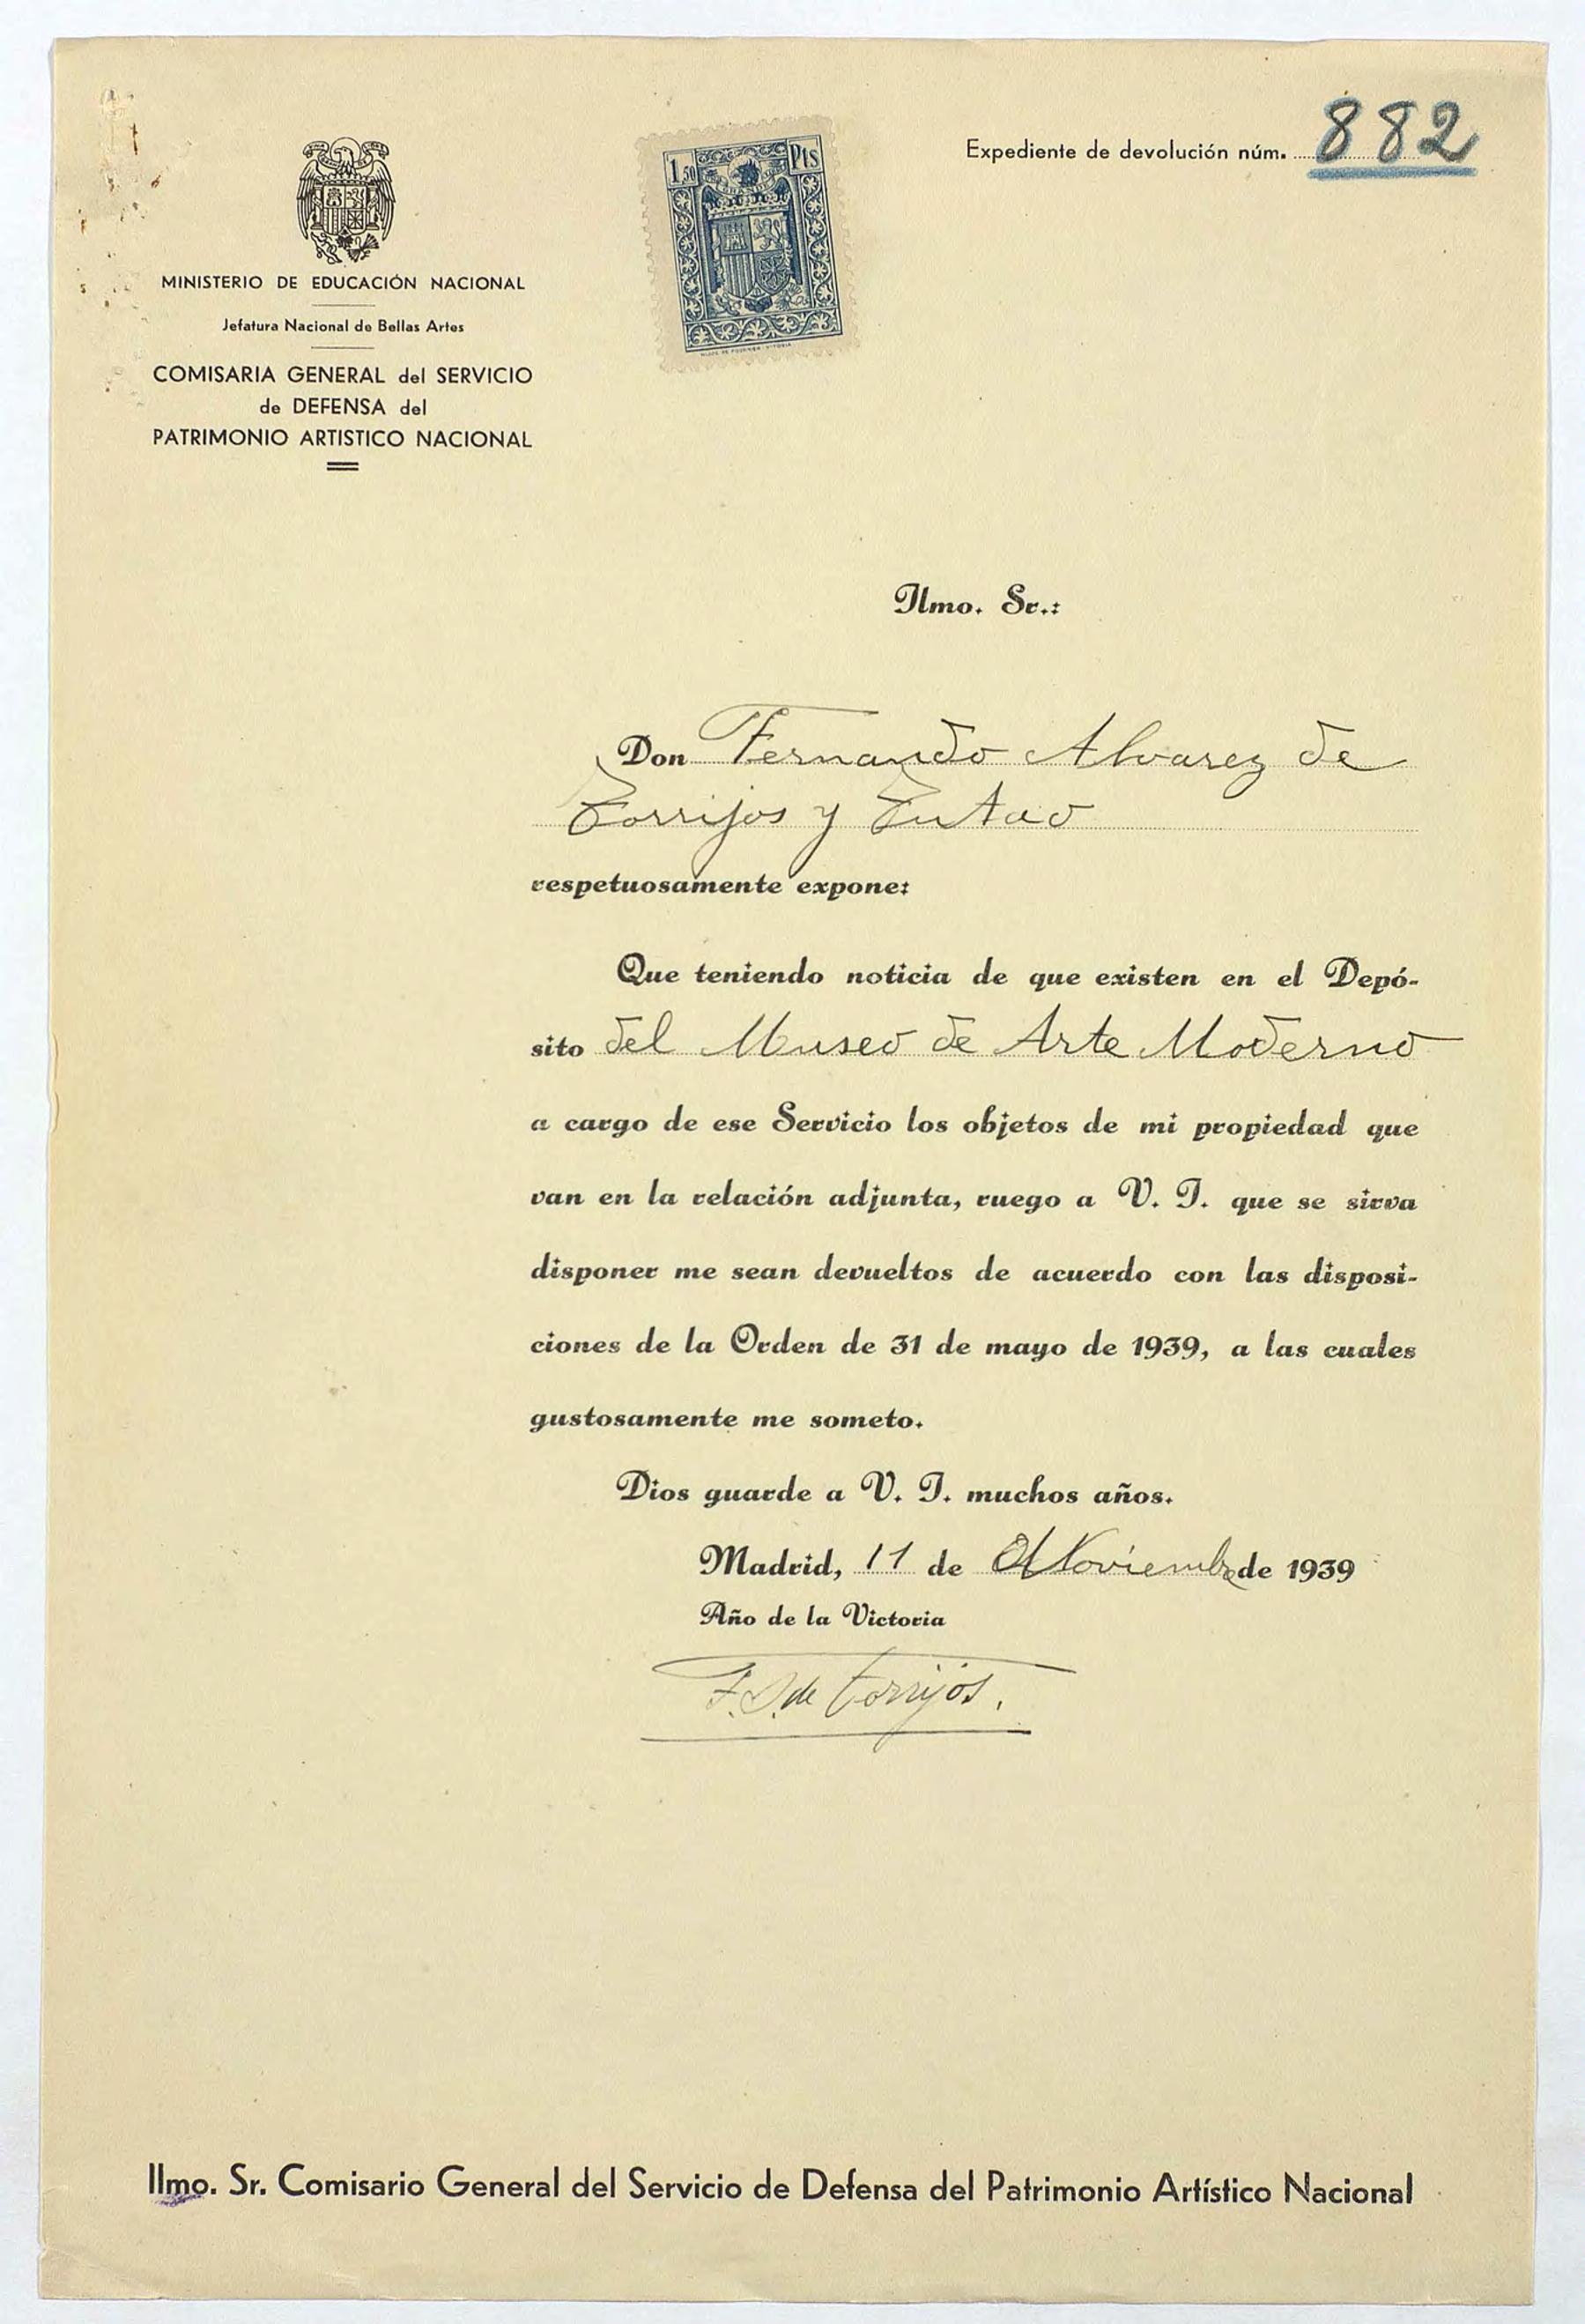 Expediente de devolución núm. 882
1,50 Pts
MINISTERIO DE EDUCACIÓN NACIONAL
Jefatura Nacional de Bellas Artes
COMISARIA GENERAL del SERVICIO
de DEFENSA del
PATRIMONIO ARTISTICO NACIONAL
Ilmo. Sr.:
Don Fernando Alvarez de
Torrijos y
respetuosamente expone:
Que teniendo noticia de que existen en el Depó-
sito del Museo de Arte Moderno
a cargo de ese Servicio los objetos de mi propiedad que
van en la relación adjunta, ruego a V. I. que se sirva
disponer me sean devueltos de acuerdo con las disposi-
ciones de la Orden de 31 de mayo de 1939, a las cuales
gustosamente me someto.
Dios guarde a V. I. muchos años.
Madrid, 11 de Noviembre de 1939
Año de la Victoria
de Torrijos.
Ilmo. Sr. Comisario General del Servicio de Defensa del Patrimonio Artístico Nacional